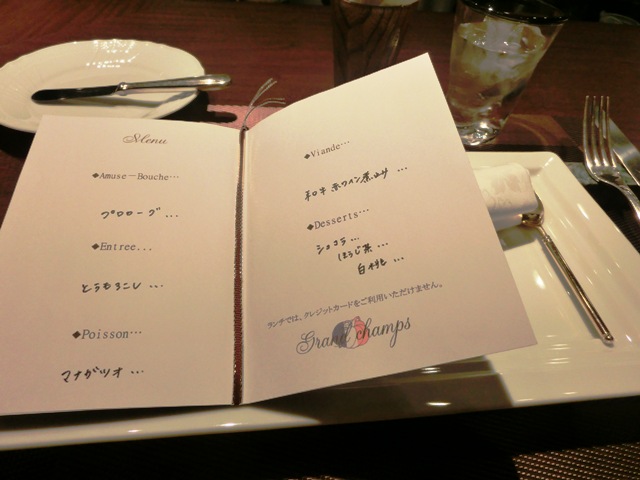 Menu
◆Amuse－Bouche…
プロローグ…
◆Entree...
とうもろこし…
◆Poisson…
マナガツオ…
◆Viande…
和牛 赤ワイン煮込み…
◆Desserts…
ショコラ…
ほうじ茶…
白桃…
ランチでは、クレジットカードをご利用いただけません。
Grand champs